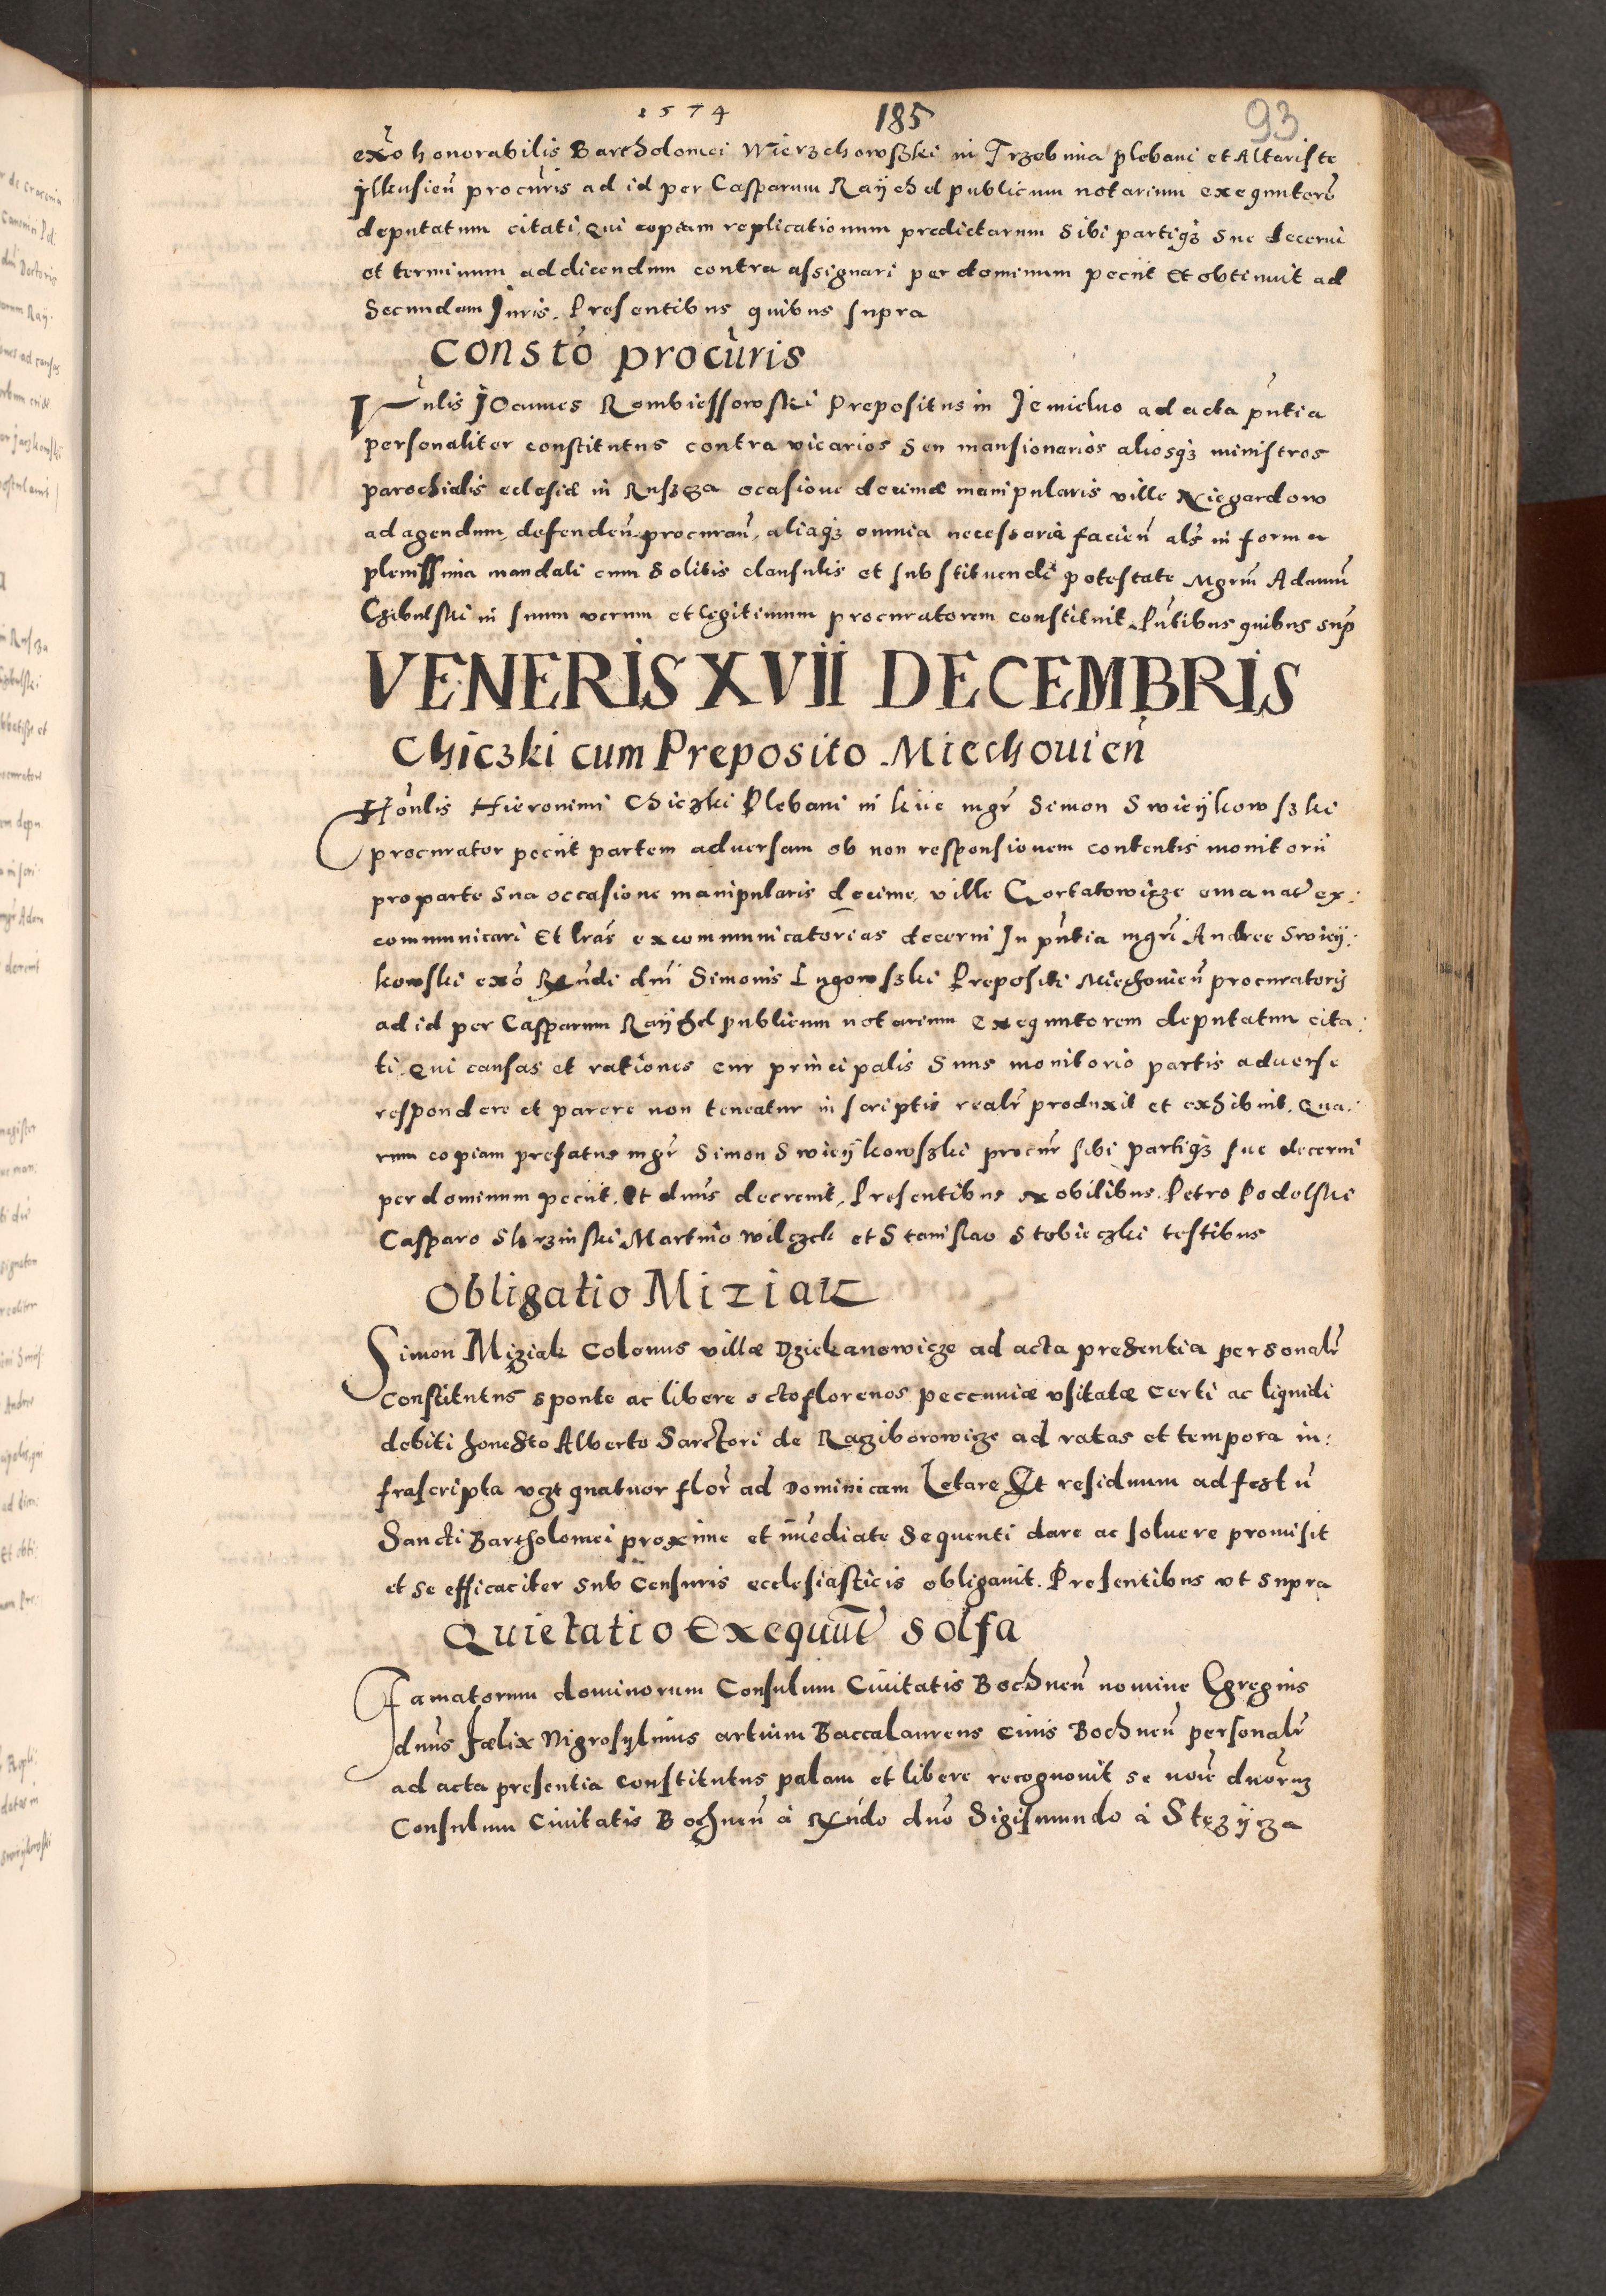 1574 185 93
exõ honorabilis Bartholomei Wierzchowszki in Trzebinia plebani et Altariste
Ilkusien̄ procuris ad id per Casparum Raÿchel publicum notarium exequutorẽ
deputatum citati, Qui copiam replicationum predictarum sibi partiqȝ sue decerni
et terminum ad dicendum contra assignari per dominum peciit Et obtinuit ad
Secundam Iuris. Presentibus quibus supra
Consto procuris
Vñlis Joannes Rombiessowski Prepositus in Jemielno ad acta pñtia
personaliter constitutus contra vicarios Seu mansionarios aliosqȝ ministros
parochialis eclesiæ in Ruszcza ocasione decimæ manipularis ville Niegardow
ad agendum, defendeñ procurañ, aliaqȝ omnia necessaria facieñ alr̃ in forma
plenissima mandati cum Solitis clausulis et substituendi potestate Mgrũm Adamũ
Czibulski in suum verum et legitimum procuratorem constituit. Pñtibus quibus sup
VENERIS XVII DECEMBRIS
Chiczki cum Preposito Miechouieñ
Hoñlis Hieronimi Chiczki Plebani in Kiie mgr̃ Simon Swieÿkowszki
procurator peciit partem aduersam ob non responsionem contentis monitorii
pro parte sua occasione manipularis decime, ville Gortatowicze emanat̃ ex:
communicari Et lr̃as excommunicatorias decerni In pñtia mgr̃i Andree Swieÿ:
kowski exõ Rñdi dñi Simonis Lugowszki Prepositi Miechouieñ procuratorij
ad id per Casparum Raÿchel publicum notarium exequutorem deputatum cita:
ti, Qui causas et rationes cur principalis Suus monitorio partis aduerse
respondere et parere non teneatur in scriptis realr̃ produxit et exhibuit, Qua:
rum copiam prefatus mgr̃ Simon Swieÿkowszki procur̃ sibi partiqȝ sue decerni
per dominum peciit. Et dñus decreuit, Presentibus Nobilibus. Petro Podolski
Casparo Skrzinski Martino Wilczek et Stanislao Stobieczki testibus
Obligatio Miziak
Simon Miziak Colonus villæ Dziekanowicze ad acta presentia personalr̃
Constitutus sponte ac libere octo florenos peccuniæ vsitatæ certi ac liquidi
debiti honesto Alberto Sarctori de Raciborowicze ad ratas et tempora in:
frascripta vczt quatuor flor̃ ad Dominicam Letare Et residuum ad festũ
Sancti Bartholomei proxime et im̃ediate Sequenti dare ac soluere promisit
et se efficaciter sub Censuris ecclesiasticis obligauit. Presentibus vt supra
Quietatio Exequut̃ Solfa
Famatorum dominorum Consulum Ciuitatis Bochneñ nomine Egregius
dñus Fælix Nigrosyluius artium Baccalaureus ciuis Bochneñ personalr̃
ad acta presentia constitutus palam et libere recognouit se noĩe dñorum
Consulum Ciuitatis Bochneñ à Rñdo dño Sigismundo à Stęzÿcza